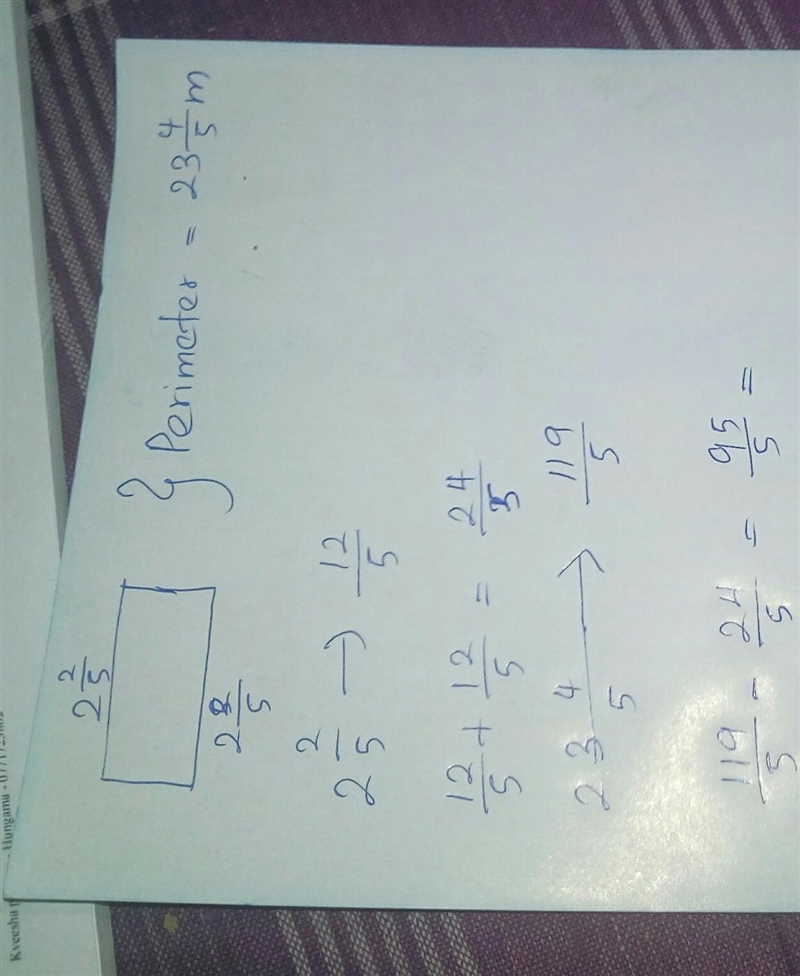 2 2/5
} Perimeter = 23 4/5 m
2 2/5
2 2/5 → 12/5
12/5 + 12/5 = 24/5
23 4/5 → 119/5
119/5 - 24/5 = 95/5 =
Kveesha
Hungama - 0771723802